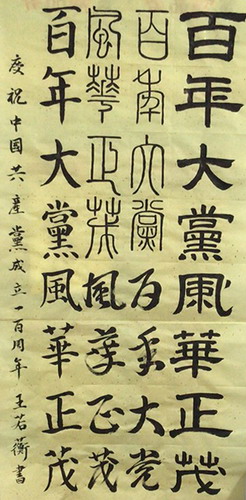 百年大黨風華正茂
百年大黨百年大党
風華正茂風華正茂
百年大黨風華正茂
慶祝中國共產黨成立一百周年 王若蘅書